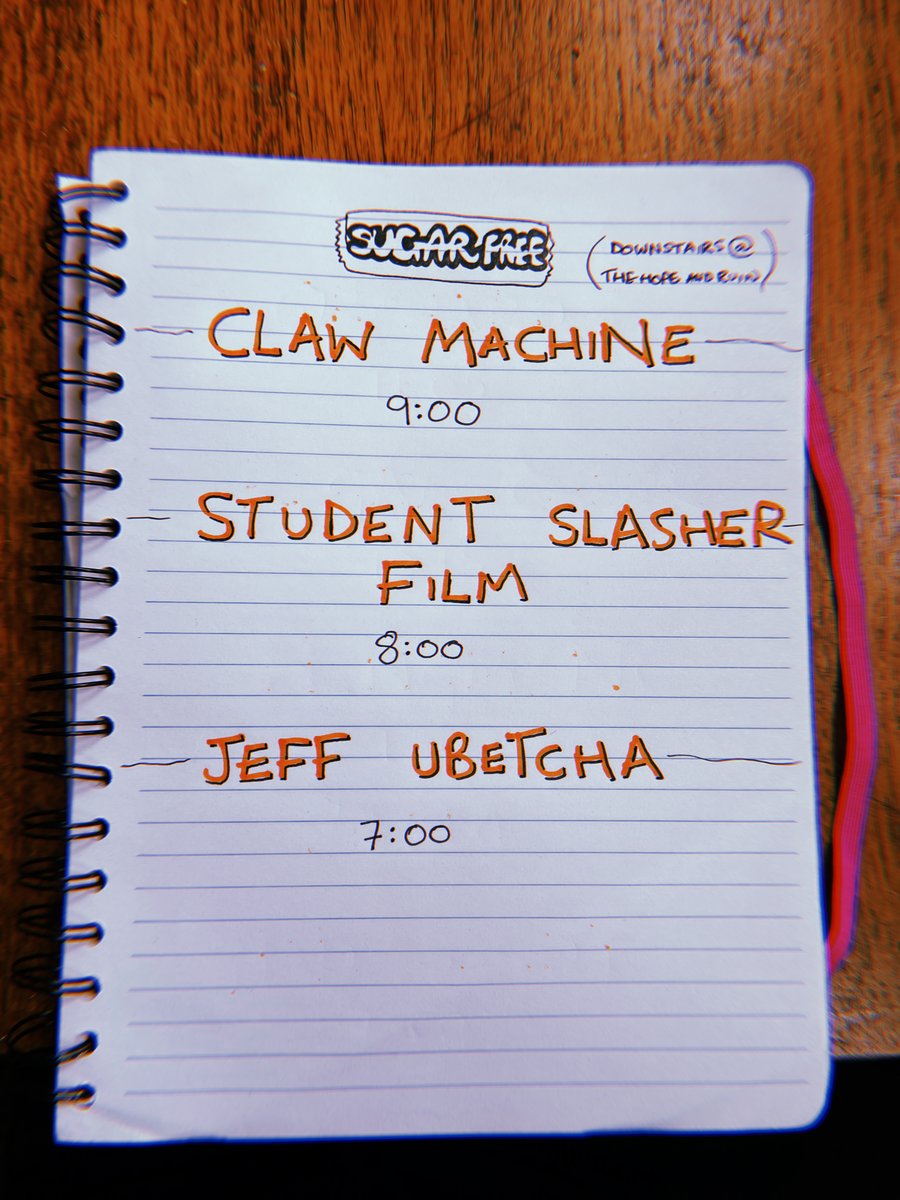 SUGAR FREE
(DOWNSTAIRS @
THE HOPE AND RUIN)
CLAW MACHINE
9:00
STUDENT SLASHER
FILM
8:00
JEFF UBETCHA
7:00